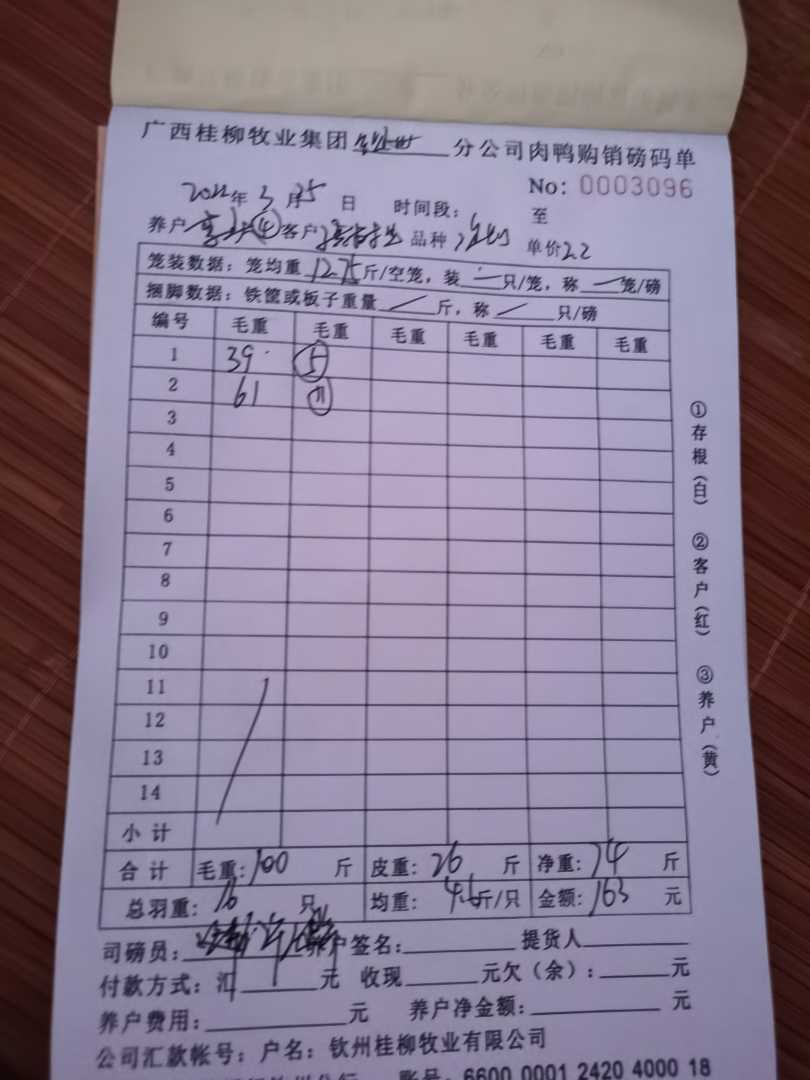 广西桂柳牧业集团 分公司肉鸭购销磅码单
No: 0003096
2022年3月25日 时间段: 至
养户 (4) 客户 品种 单价2.2
笼装数据: 笼均重12.75斤/空笼, 装一只/笼, 称一笼/磅
捆脚数据: 铁筐或板子重量 斤, 称 只/磅
编号 毛重 毛重 毛重 毛重 毛重 毛重
1 39 5
2 61 11
3
4
5
6
7
8
9
10
11
12
13
14
小计
合计 毛重: 100 斤 皮重: 26 斤 净重: 74 斤
总羽重: 16 只 均重: 4.6斤/只 金额: 163 元
司磅员: 养户签名: 提货人
付款方式: 汇 元 收现 元欠(余): 元
养户费用: 元 养户净金额: 元
公司汇款帐号: 户名: 钦州桂柳牧业有限公司
账号: 6600 0001 2420 4000 18
①存根(白) ②客户(红) ③养户(黄)